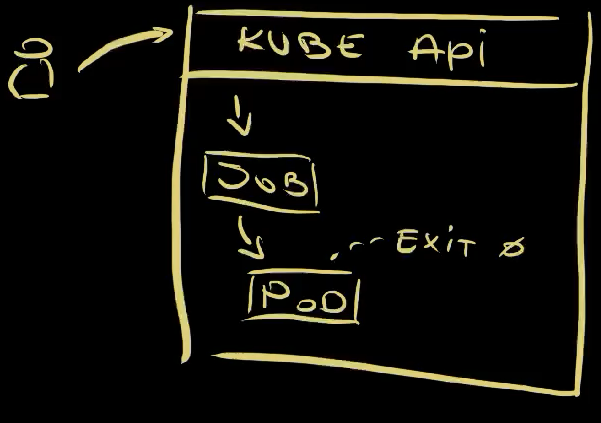 KUBE Api
JOB
EXIT 0
POD